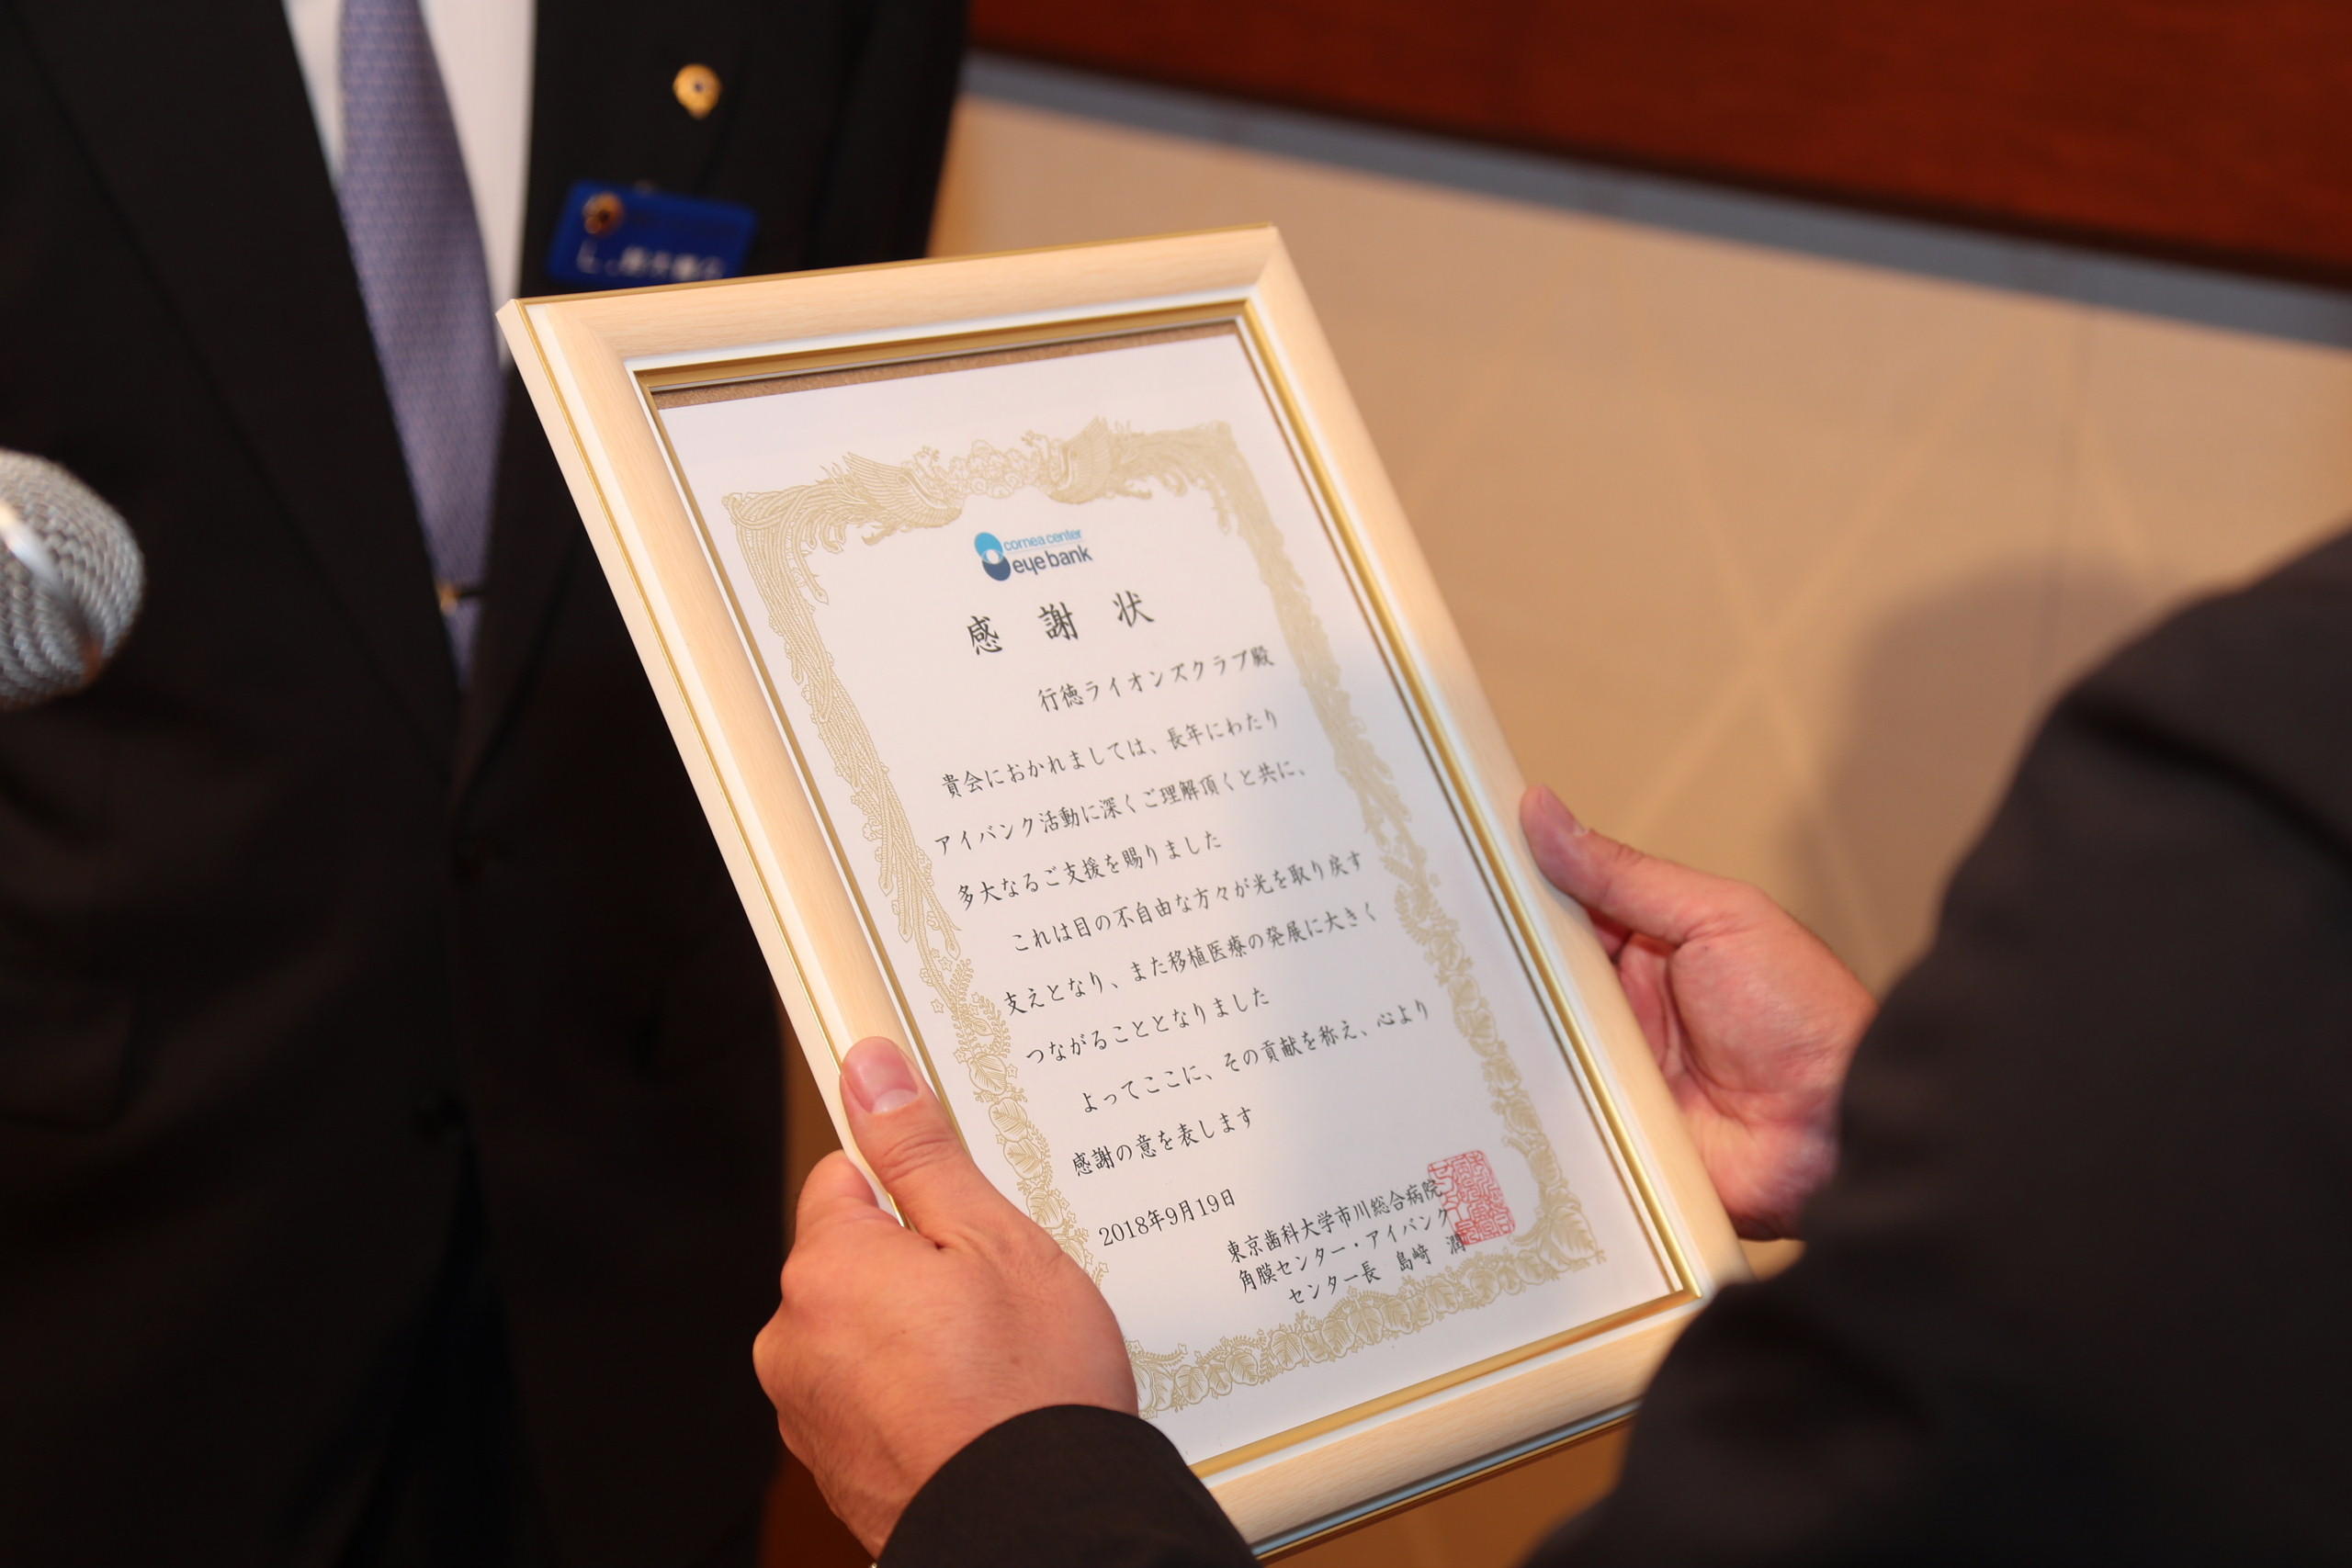 cornea center
eye bank
感謝状
行徳ライオンズクラブ殿
貴会におかれましては、長年にわたり
アイバンク活動に深くご理解頂くと共に、
多大なるご支援を賜りました
これは目の不自由な方々が光を取り戻す
支えとなり、また移植医療の発展に大きく
つながることとなりました
よってここに、その貢献を称え、心より
感謝の意を表します
2018年9月19日
東京歯科大学市川総合病院
角膜センター・アイバンク
センター長 島崎 潤